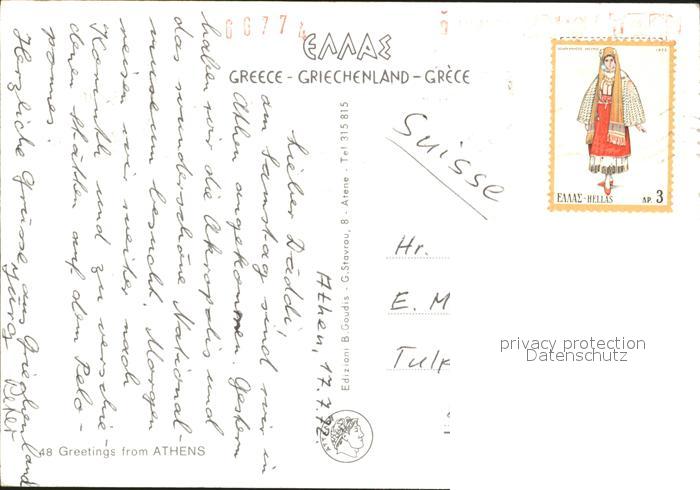 66774
ΕΛΛΑΣ
GREECE - GRIECHENLAND - GRÈCE
ΕΛΛΑΣ-HELLAS
ΔΡ. 3
Suisse
Hr.
E. M
Tulp
privacy protection
Datenschutz
Edizioni B. Goudis - G. Stavrou, 8 - Atene - Tel 315 815
48 Greetings from ATHENS
Athen, 17.7.72
Lieber Däddi,
am Samstag sind wir in
Athen angekommen. Gestern
haben wir die Akropolis und
das wunderschöne National-
museum besucht. Morgen
reisen wir weiter nach
Korinth und zu verschie-
denen Stätten auf dem Pelo-
ponnes.
Herzliche Grüsse aus Griechenland
Jürg Peter